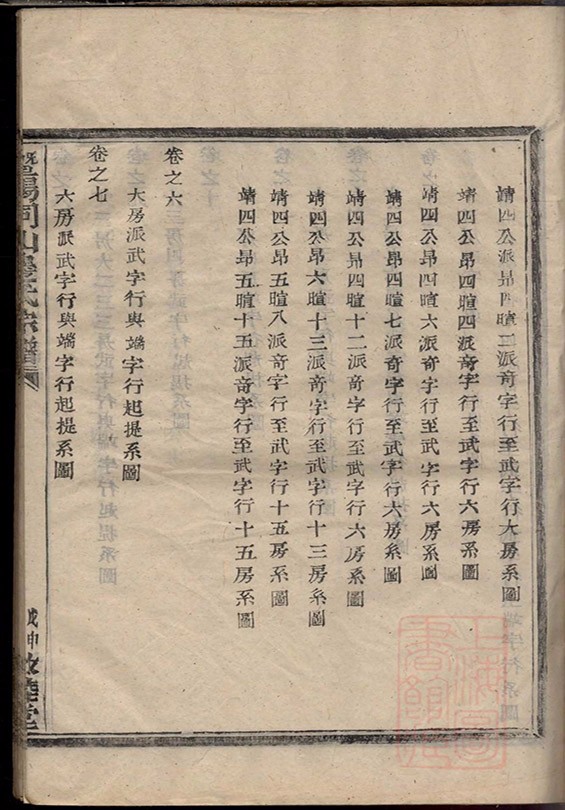 靖四公派昻四暄二派竒字行至武字行大房系圖
靖四公昻四暄四派竒字行至武字行六房系圖
靖四公昻四暄六派竒字行至武字行六房系圖
靖四公昻四暄七派竒字行至武字行六房系圖
靖四公昻四暄十二派竒字行至武字行六房系圖
靖四公昻六暄十三派竒字行至武字行十三房系圖
靖四公昻五暄八派竒字行至武字行十五房系圖
靖四公昻五暄十五派竒字行至武字行十五房系圖
卷之六
大房派武字行與端字行起提系圖
卷之七
六房派武字行與端字行起提系圖
暨陽同山 氏宗譜
戊申 睦堂
上海圖書館藏